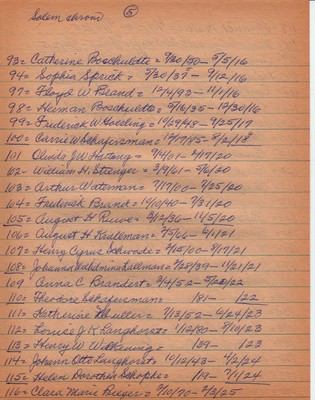 Salem
5
93= Catherine Boschulte = 9/20/30 - 5/5/16
94= Sophia Speick = 7/30/37 - 9/12/16
97= Floyd W Brand = 12/4/93 - 11/1/16
98= Heiman Boschulte = 5/16/35 - 12/30/16
99= Frederick W Hoerling = 10/29/48 - 4/25/17
100= Carrie W Schafersman = 12/17/85 - 8/2/18
101 W Hartung = 7/4/01 - 2/17/20
102- William H. Strenger = 3/9/61 - 5/6/20
103= Arthur Waterman = 7/17/00 - 7/25/20
104= Fredrick Brand = 10/10/40 - 7/31/20
105= August H Ruwe = 2/12/36 - 11/5/20
106= August H Kruleman = 7/5/66 - 6/1/21
107= Henry Cyrus Schwode = 2/15/00 - 9/17/21
108= Johanna Wilhelmina Kallman = 7/25/39 - 11/21/21
109 Anna C. Brandert = 3/4/52 - 5/22/22
110= Theodore Schafersman = /81 - /22
111= Katherine Muller = 7/13/52 - 6/24/23
112= Louise J. K Langhorst = 1/12/80 - 7/10/23
113= Henry W Wilkening = /29 - /23
114= Johann Otto Langhorst = 10/12/43 - 2/2/24
115= Helen Dorothea Schoppe = /19 - 7/1/24
116= Clara Marie Rieger = 2/10/70 - 2/3/25